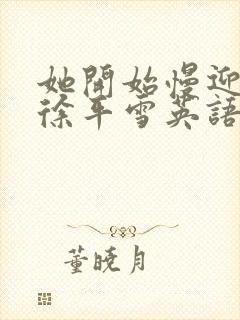 她開始慢迎
徐平雪英語
董曉月